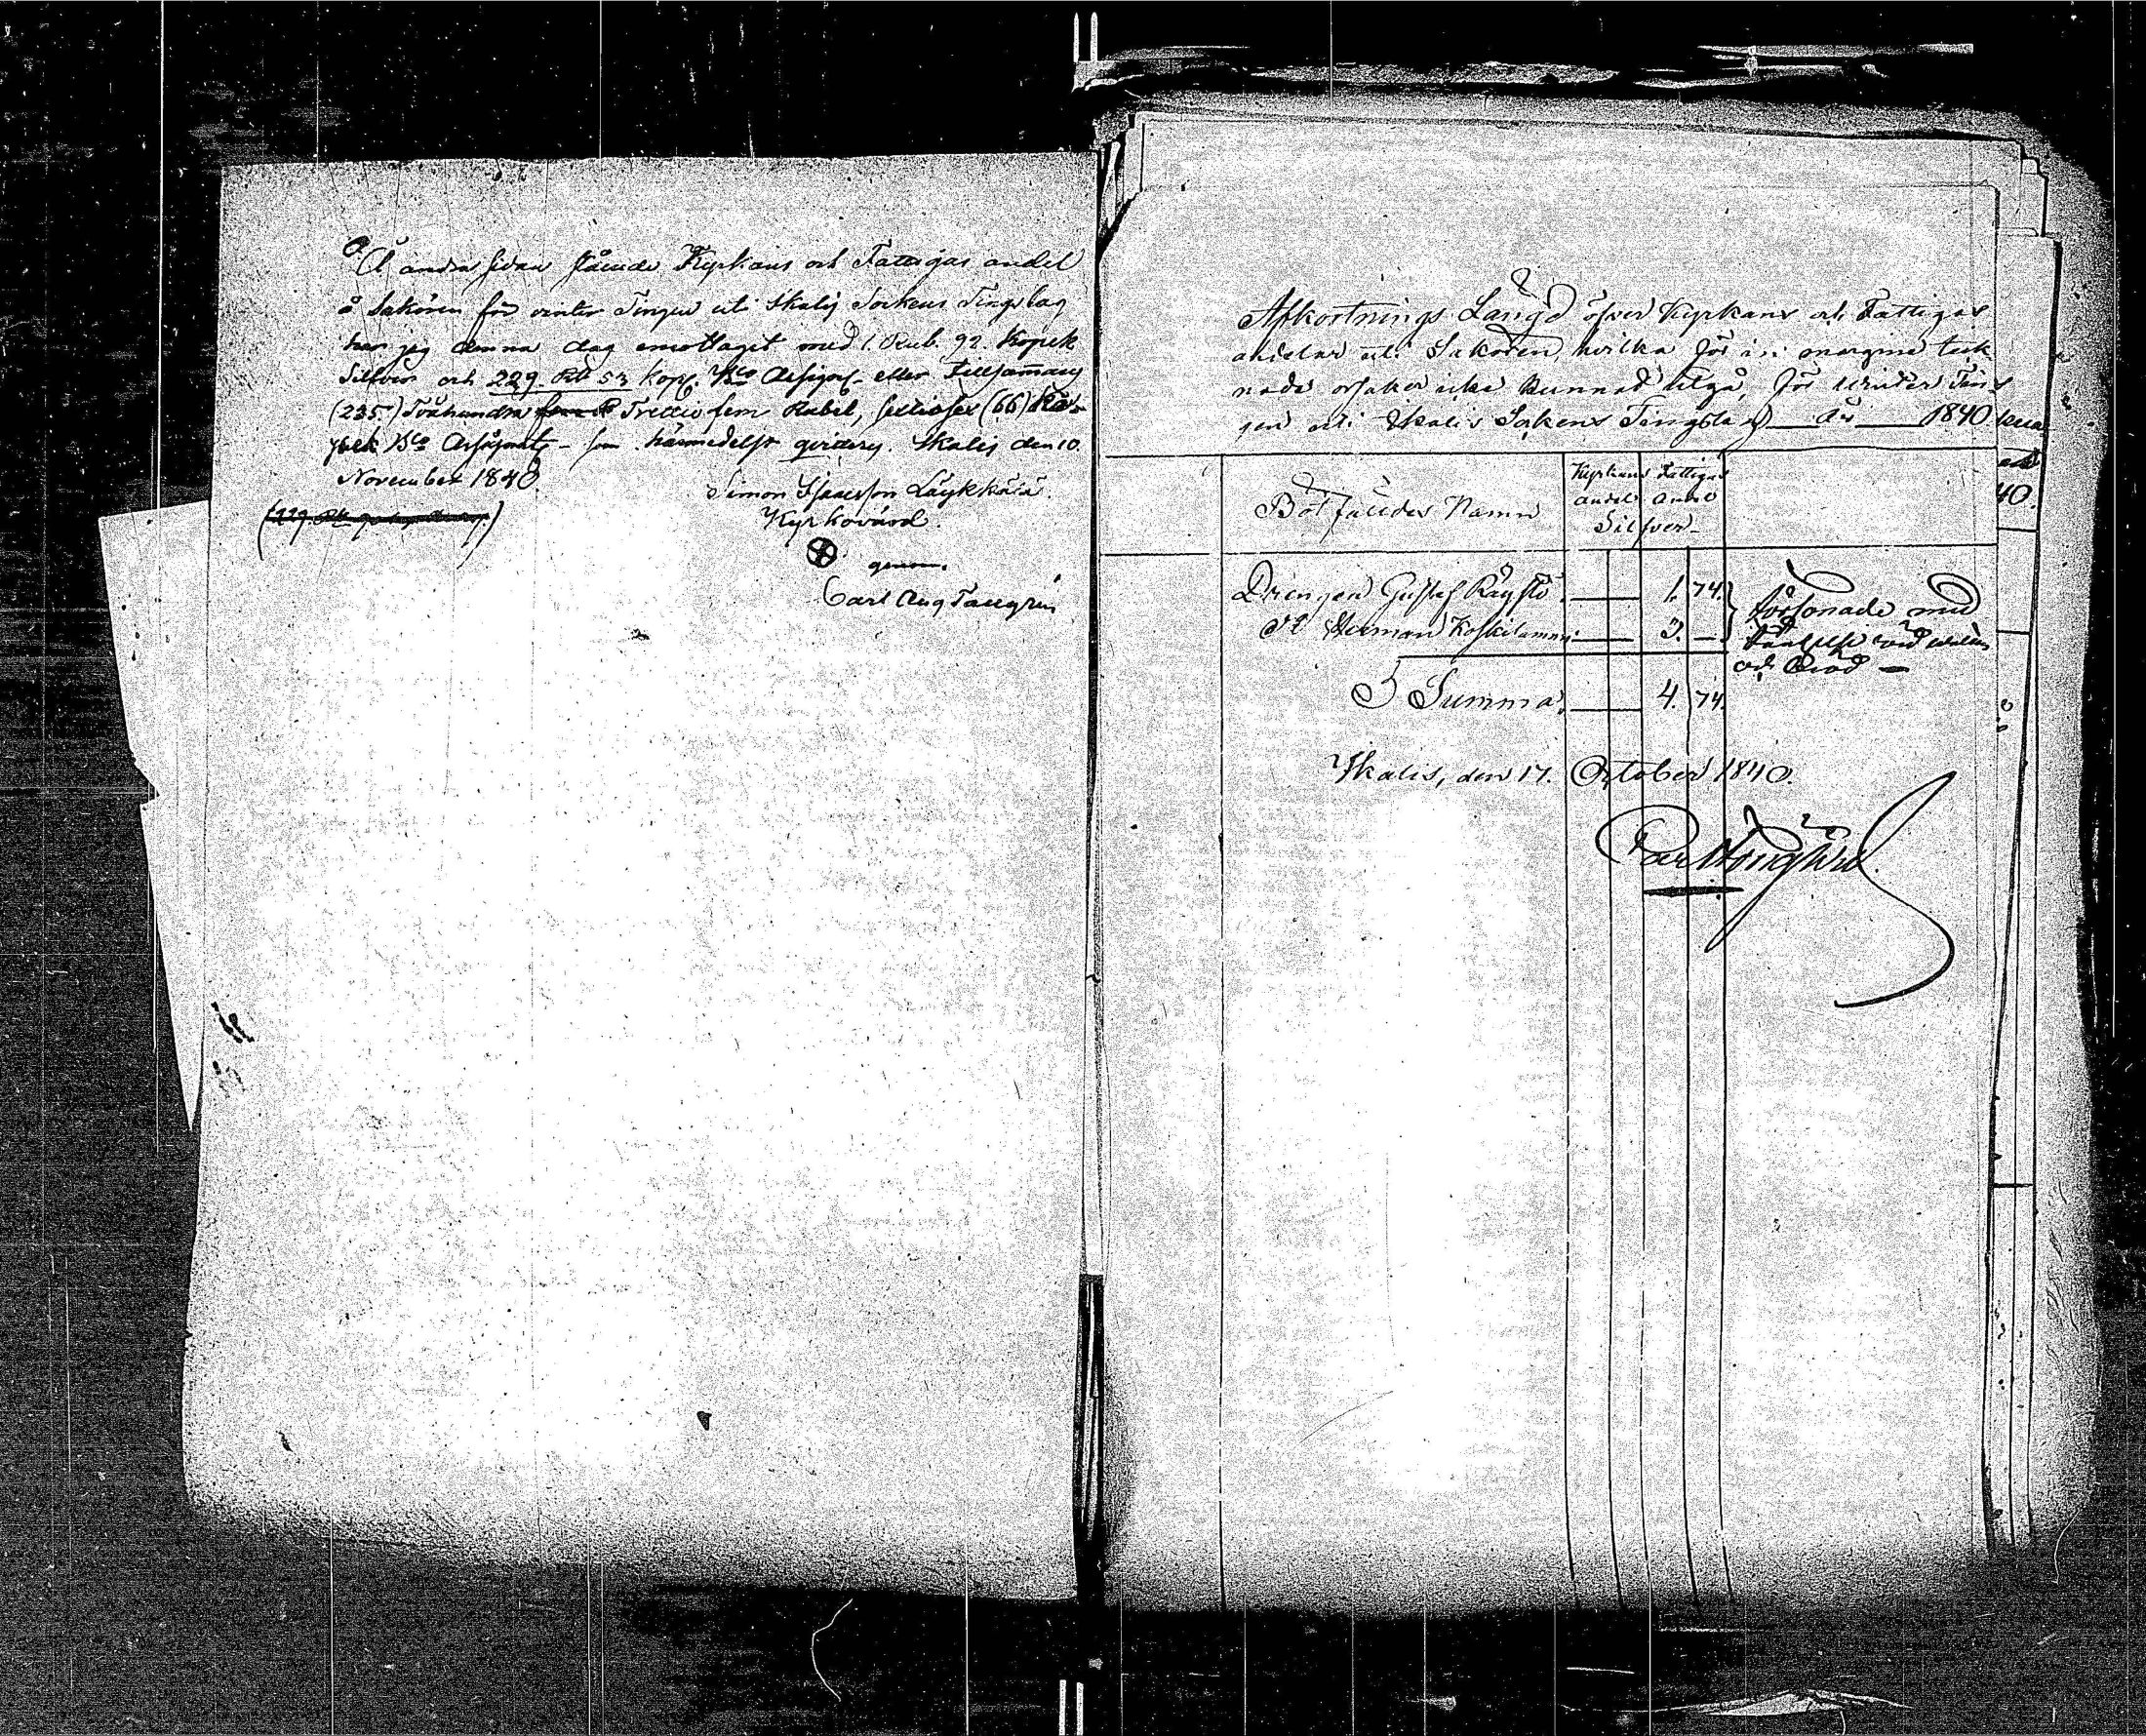 Å andra sidan stående Kyrkans och Fattigas andel
å Sakören för vinter Tinget uti Ikalis Sockens Tingslag
har jag denna dag emottagit med 1. Rub. 92. Kopek
Silfver och 229. Rub 53 kop. Bco Assign. eller Tillsammans
(235) Tvåhundra Trettio fem Rubel, sextiosex (66) Ko-
pek Bco Assignat. som härmedelst qvitteras. Ikalis den 10.
November 1840
Simon Isacsson Läykkälä
Kyrkovärd.
genom.
Carl Aug Tallgrén
Afkortnings Längd öfver Kyrkans och Fattigas
andelar uti Saköron, hvilka för i margine teck-
nade orsaker icke kunnat utgå, för vinter Tin-
gen uti Ikalis Sockens Tingslag År 1840
Botfäldes Namn
Kyrkans Fattigas
andel andel
Silfver
Drengen Gustaf Räystö 1. 74.
Dr Herman Koskilammi 3. —
försonade med
fängelse vid vatten
och Bröd —
S Summa 4. 74.
Ikalis, den 17. October 1840.
40.